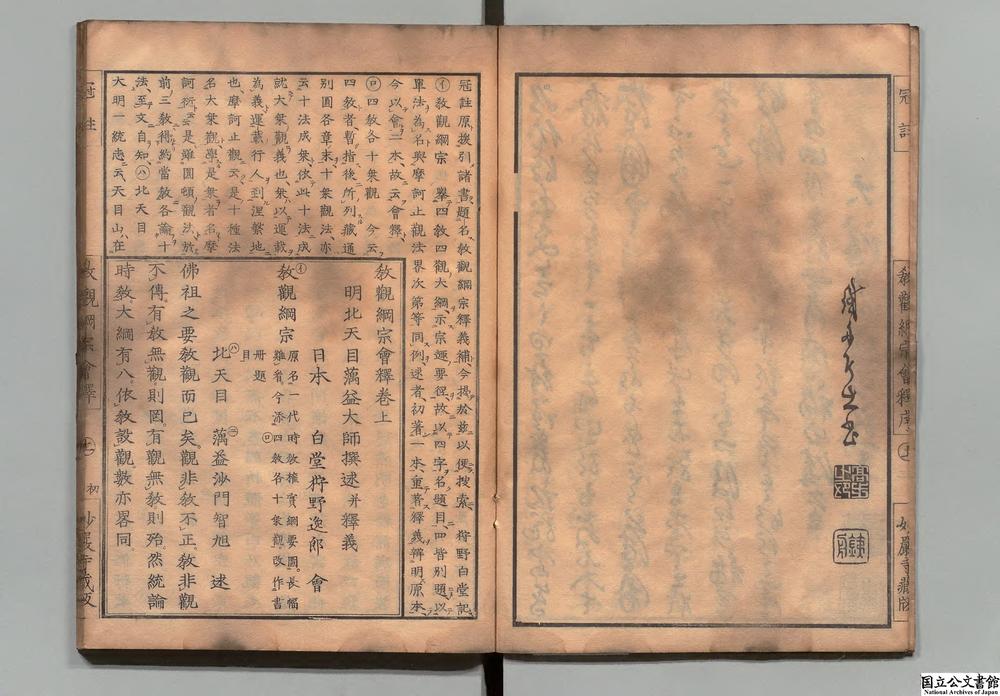 冠註
教觀綱宗會釋序
妙嚴寺藏版
冠註原援引諸書題名、教觀綱宗釋義補今揭於玆以便搜索 狩野白堂記
㋑教觀綱宗 擧四教四觀大綱示宗趣要徑故以四字名題目四皆別題以
單法為名與摩訶止觀法界次第等同例述者初著一本重著釋義辨明原本
今以會二本故云會釋
㋺四教各十乘觀 今云
四教者暫指後所列藏通
別圓各章末十乘觀法亦
云十法成乘依此十法成
就大乘觀義也乘以運載
為義運載行人到涅槃地
也摩訶止觀云是十種法
名大乘觀學是乘者名摩
訶衍云是雖圓頓觀法於
前三教稍約當教各論十
法至文自知㋩北天目
大明一統志云天目山在
教觀綱宗會釋卷上
明北天目蕅益大師撰述 并釋義
日本 白堂狩野逸郎 會
㋑教觀綱宗 原名一代時教權實綱要圖。長幅
難看今添㋺四教各十乘觀改作書
冊題
目
㋩北天目㊁蕅益沙門智旭 述
佛祖之要教觀而已矣。觀非教不正教非觀
不傳有教無觀則罔有觀無教則殆。然統論
時教大綱有八。依教設觀數亦畧同
冠註
教觀綱宗會釋
初
妙嚴寺藏版
国立公文書館
National Archives of Japan